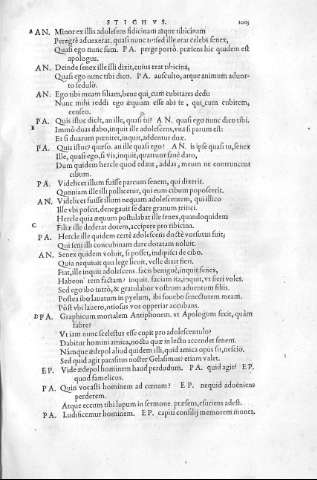 STICHVS. 1003
A AN. Minor ex illis adolescens fidicinam atque tibicinam
Peregrè aduexerat, quasi nunc tu: sed ille erat cælebs senex,
Quasi ego nunc sum. PA. perge porrò. præsens hic quidem est
apologus.
AN. Deinde senex ille illi dixit, cuius erat tibicina,
Quasi ego nunc tibi dico. PA. ausculto, atque animum aduor-
to sedulò.
AN. Ego tibi meam filiam, bene qui cum cubitares dedi:
Nunc mihi reddi ego æquum esse abs te, qui cum cubitem,
censeo.
PA. Quis istuc dicit, an ille, quasi tu? AN. quasi ego nunc dico tibi.
B Immò duas dabo, inquit ille adolescens, vna si parum est:
Et si duarum pœnitet, inquit, addentur duæ.
PA. Quis istuc? quæso. an ille quasi ego? AN. is ipse quasi tu, senex
Ille, quasi ego, si vis, inquit, quatuor sanè daro,
Dum quidem hercle quod edant, addas, meum ne contruncent
cibum.
PA. Videlicet illum fuisse parcum senem, qui dixerit.
Quoniam ille illi polliceatur, qui eum cibum poposcerit.
AN. Videlicet fuisse illum nequam adolescentem, qui illico
Ille vbi poscit, denegauit se dare granum tritici.
Hercle qui æquum postulabat ille senex, quandoquidem
C Filiæ illæ dederat dotem, accipere pro tibicina.
PA. Hercle ille quidem certè adolescens doctè vorsutus fuit,
Qui seni illi concubinam dare dotatam noluit.
AN. Senex quidem voluit, si posset, indipisci de cibo.
Quia nequiuit qua lege licuit, velle dixit fieri.
Fiat, ille inquit adolescens. facis benignè, inquit senex,
Habeon' rem factam? inquit. faciam ita, inquit, vt fieri voles.
Sed ego ibo intrò, & gratulabor vostrum aduentum filiis.
Postea ibo lauatum in pyelum, ibi fouebo senectutem meam.
Pòst vbi lauero, otiosus vos opperiar accubans.
D PA. Graphicum mortalem Antiphonem, vt Apologum fecit, quàm
fabrè?
Vt iam nunc scelestus esse cupit pro adolescentulo?
Dabitur homini amica, noctu quæ in lecto accentet senem.
Namque ædepol aliud quidem illi, quid amica opus sit, nescio.
Sed quid agit parasitus noster Gelasimus? etiam valet.
EP. Vide ædepol hominem haud perdudum. PA. quid agit? EP.
quod famelicus.
PA. Quin vocasti hominem ad cœnam? EP. nequid adueniens
perderem.
Atque eccum tibi lupum in sermone. præsens, esuriens adest.
PA. Ludificemur hominem. EP. capti consilij memorem mones.